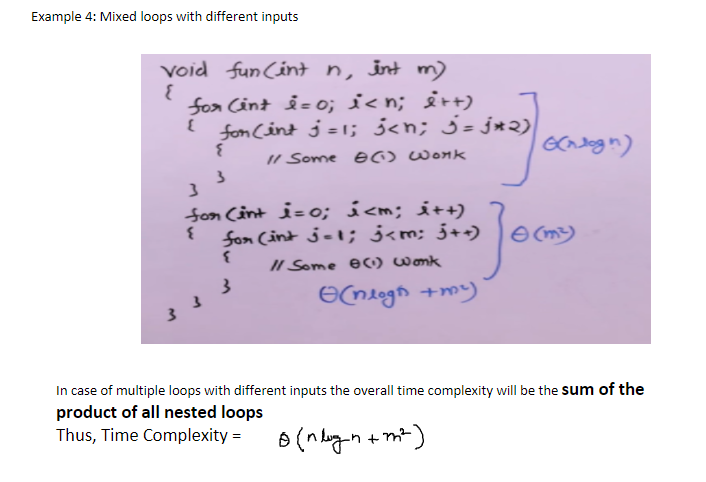 Example 4: Mixed loops with different inputs
void fun(int n, int m)
{
for (int i=0; i<n; i++)
{ for(int j=1; j<n; j=j*2)
{
// Some θ(1) work
}
}
θ(nlogn)
for (int i=0; i<m; i++)
{ for(int j=1; j<m; j++)
{
// Some θ(1) work
}
}
}
θ(m²)
θ(nlogn +m²)
In case of multiple loops with different inputs the overall time complexity will be the sum of the
product of all nested loops
Thus, Time Complexity = θ(nlogn+m²)